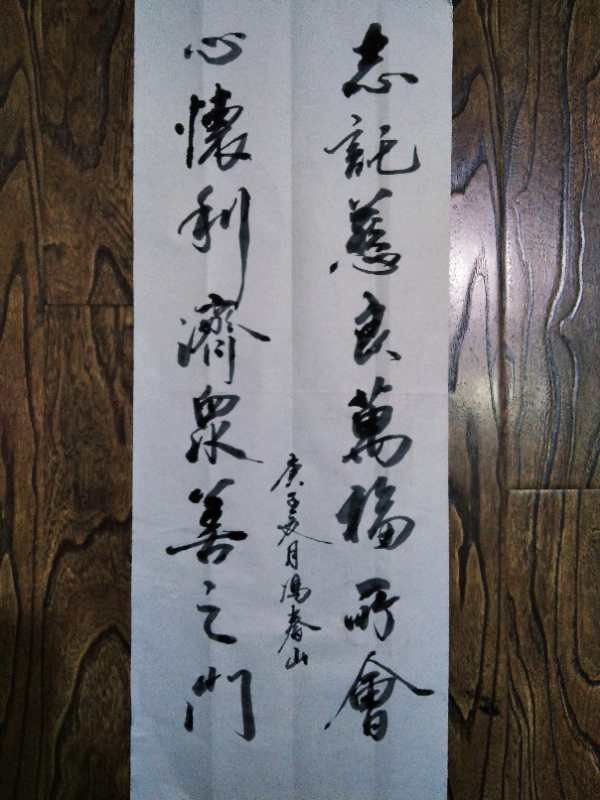 志託慈良萬福所會
心懷利濟眾善之門
庚子夏月馮春山